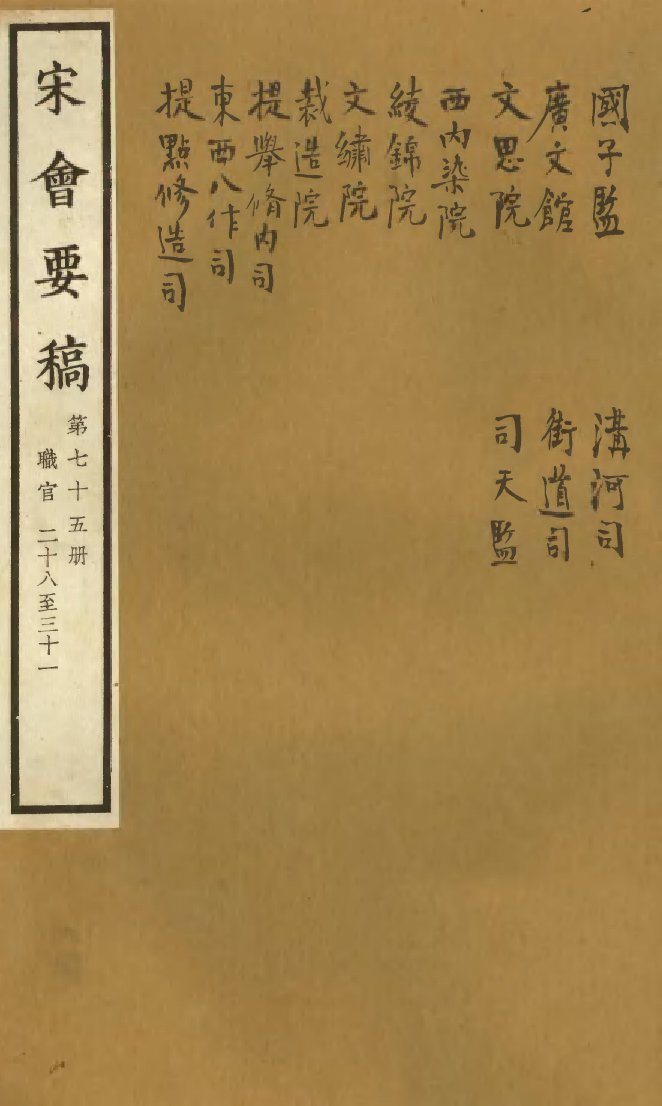 國子監
廣文館
文思院
西內染院
綾錦院
文繡院
裁造院
提舉脩內司
東西八作司
提點修造司
溝河司
街道司
司天監
宋會要稿
第七十五册
職官 二十八至三十一